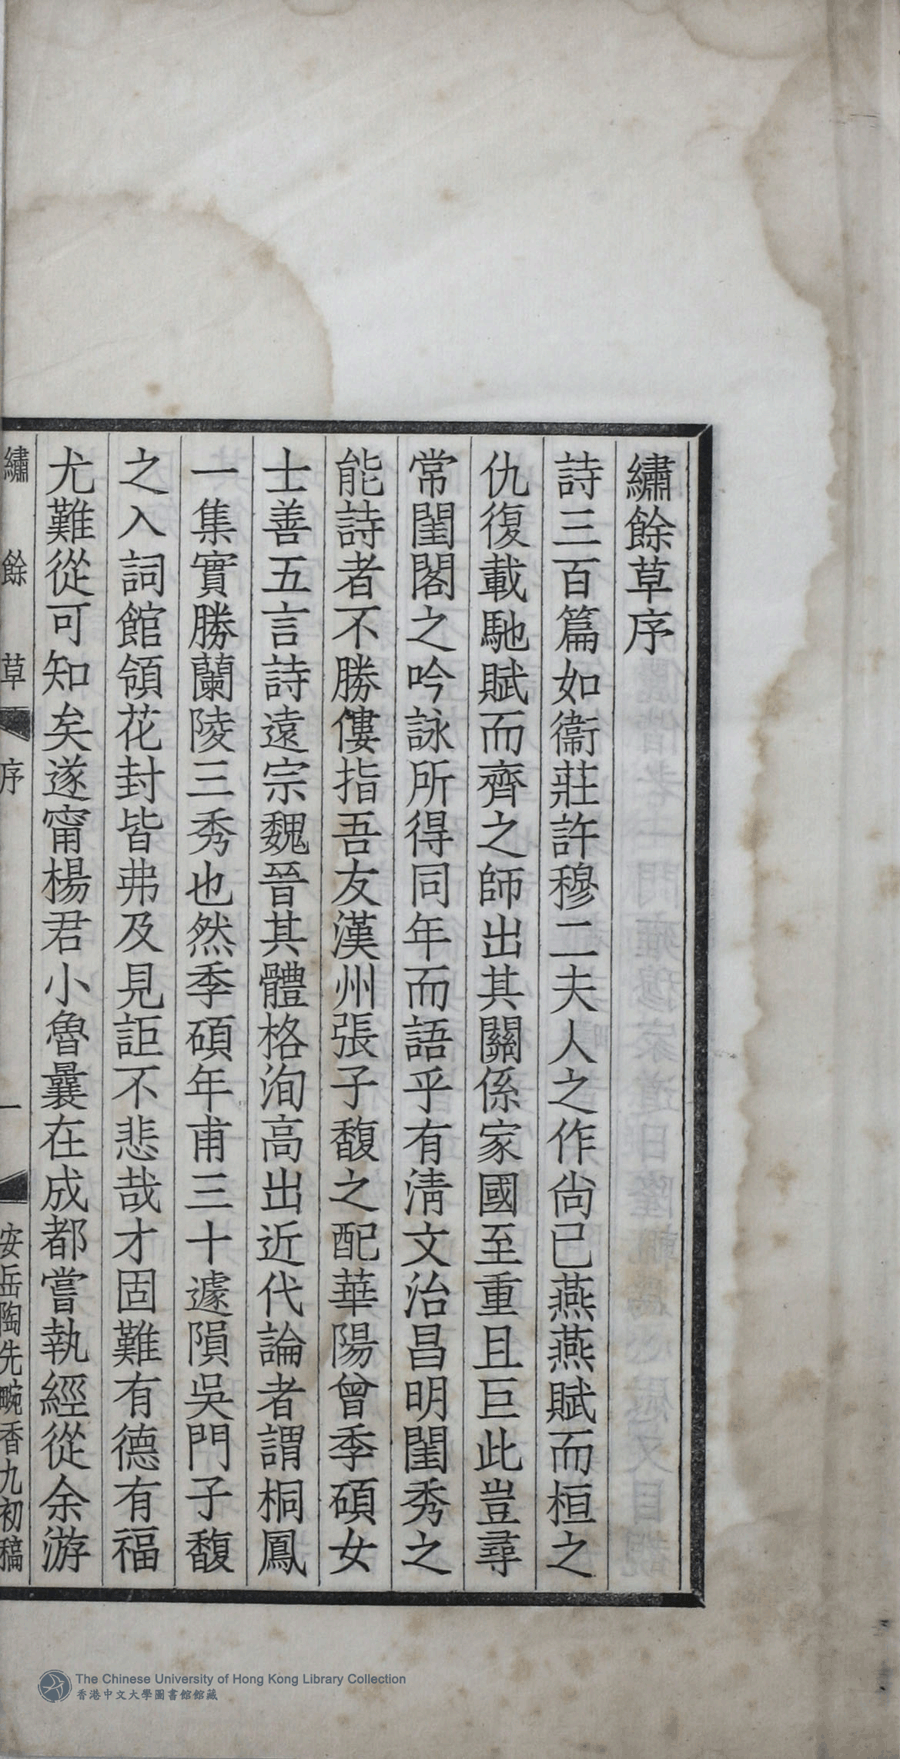 繡餘草序
詩三百篇如衞莊許穆二夫人之作尙已燕燕賦而桓之
仇復載馳賦而齊之師出其關係家國至重且巨此豈尋
常閨閣之吟詠所得同年而語乎有淸文治昌明閨秀之
能詩者不勝僂指吾友漢州張子馥之配華陽曾季碩女
士善五言詩遠宗魏晉其體格洵高出近代論者謂桐鳳
一集實勝蘭陵三秀也然季碩年甫三十遽隕吳門子馥
之入詞館領花封皆弗及見詎不悲哉才固難有德有福
尤難從可知矣遂甯楊君小魯曩在成都嘗執經從余游
繡餘草 序 一 安岳陶先畹香九初稿
The Chinese University of Hong Kong Library Collection
香港中文大學圖書館館藏